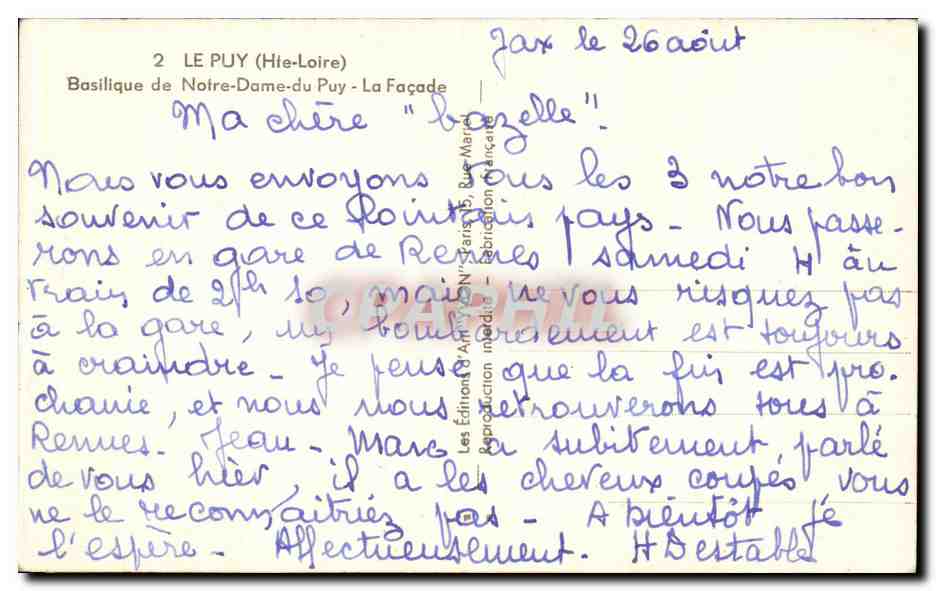 Jax le 26 août
2 LE PUY (Hte-Loire)
Basilique de Notre-Dame-du Puy - La Façade
Ma chère "bazelle".
Nous vous envoyons tous les 3 notre bon
souvenir de ce lointain pays - Nous passe-
rons en gare de Rennes samedi 4 au
train de 2h 10, mais ne vous risquez pas
à la gare, un bombardement est toujours
à craindre - Je pense que la fin est pro-
chaine, et nous nous retrouverons tous à
Rennes. Jean-Marc a subitement parlé
de vous hier, il a les cheveux coupés vous
ne le reconnaitriez pas - A bientôt je
l'espère - Affectueusement. H Destable
Les Éditions d'Art "YVON" Paris, 15, Rue Martel
Reproduction interdite - Fabrication Française
CPAPHIL